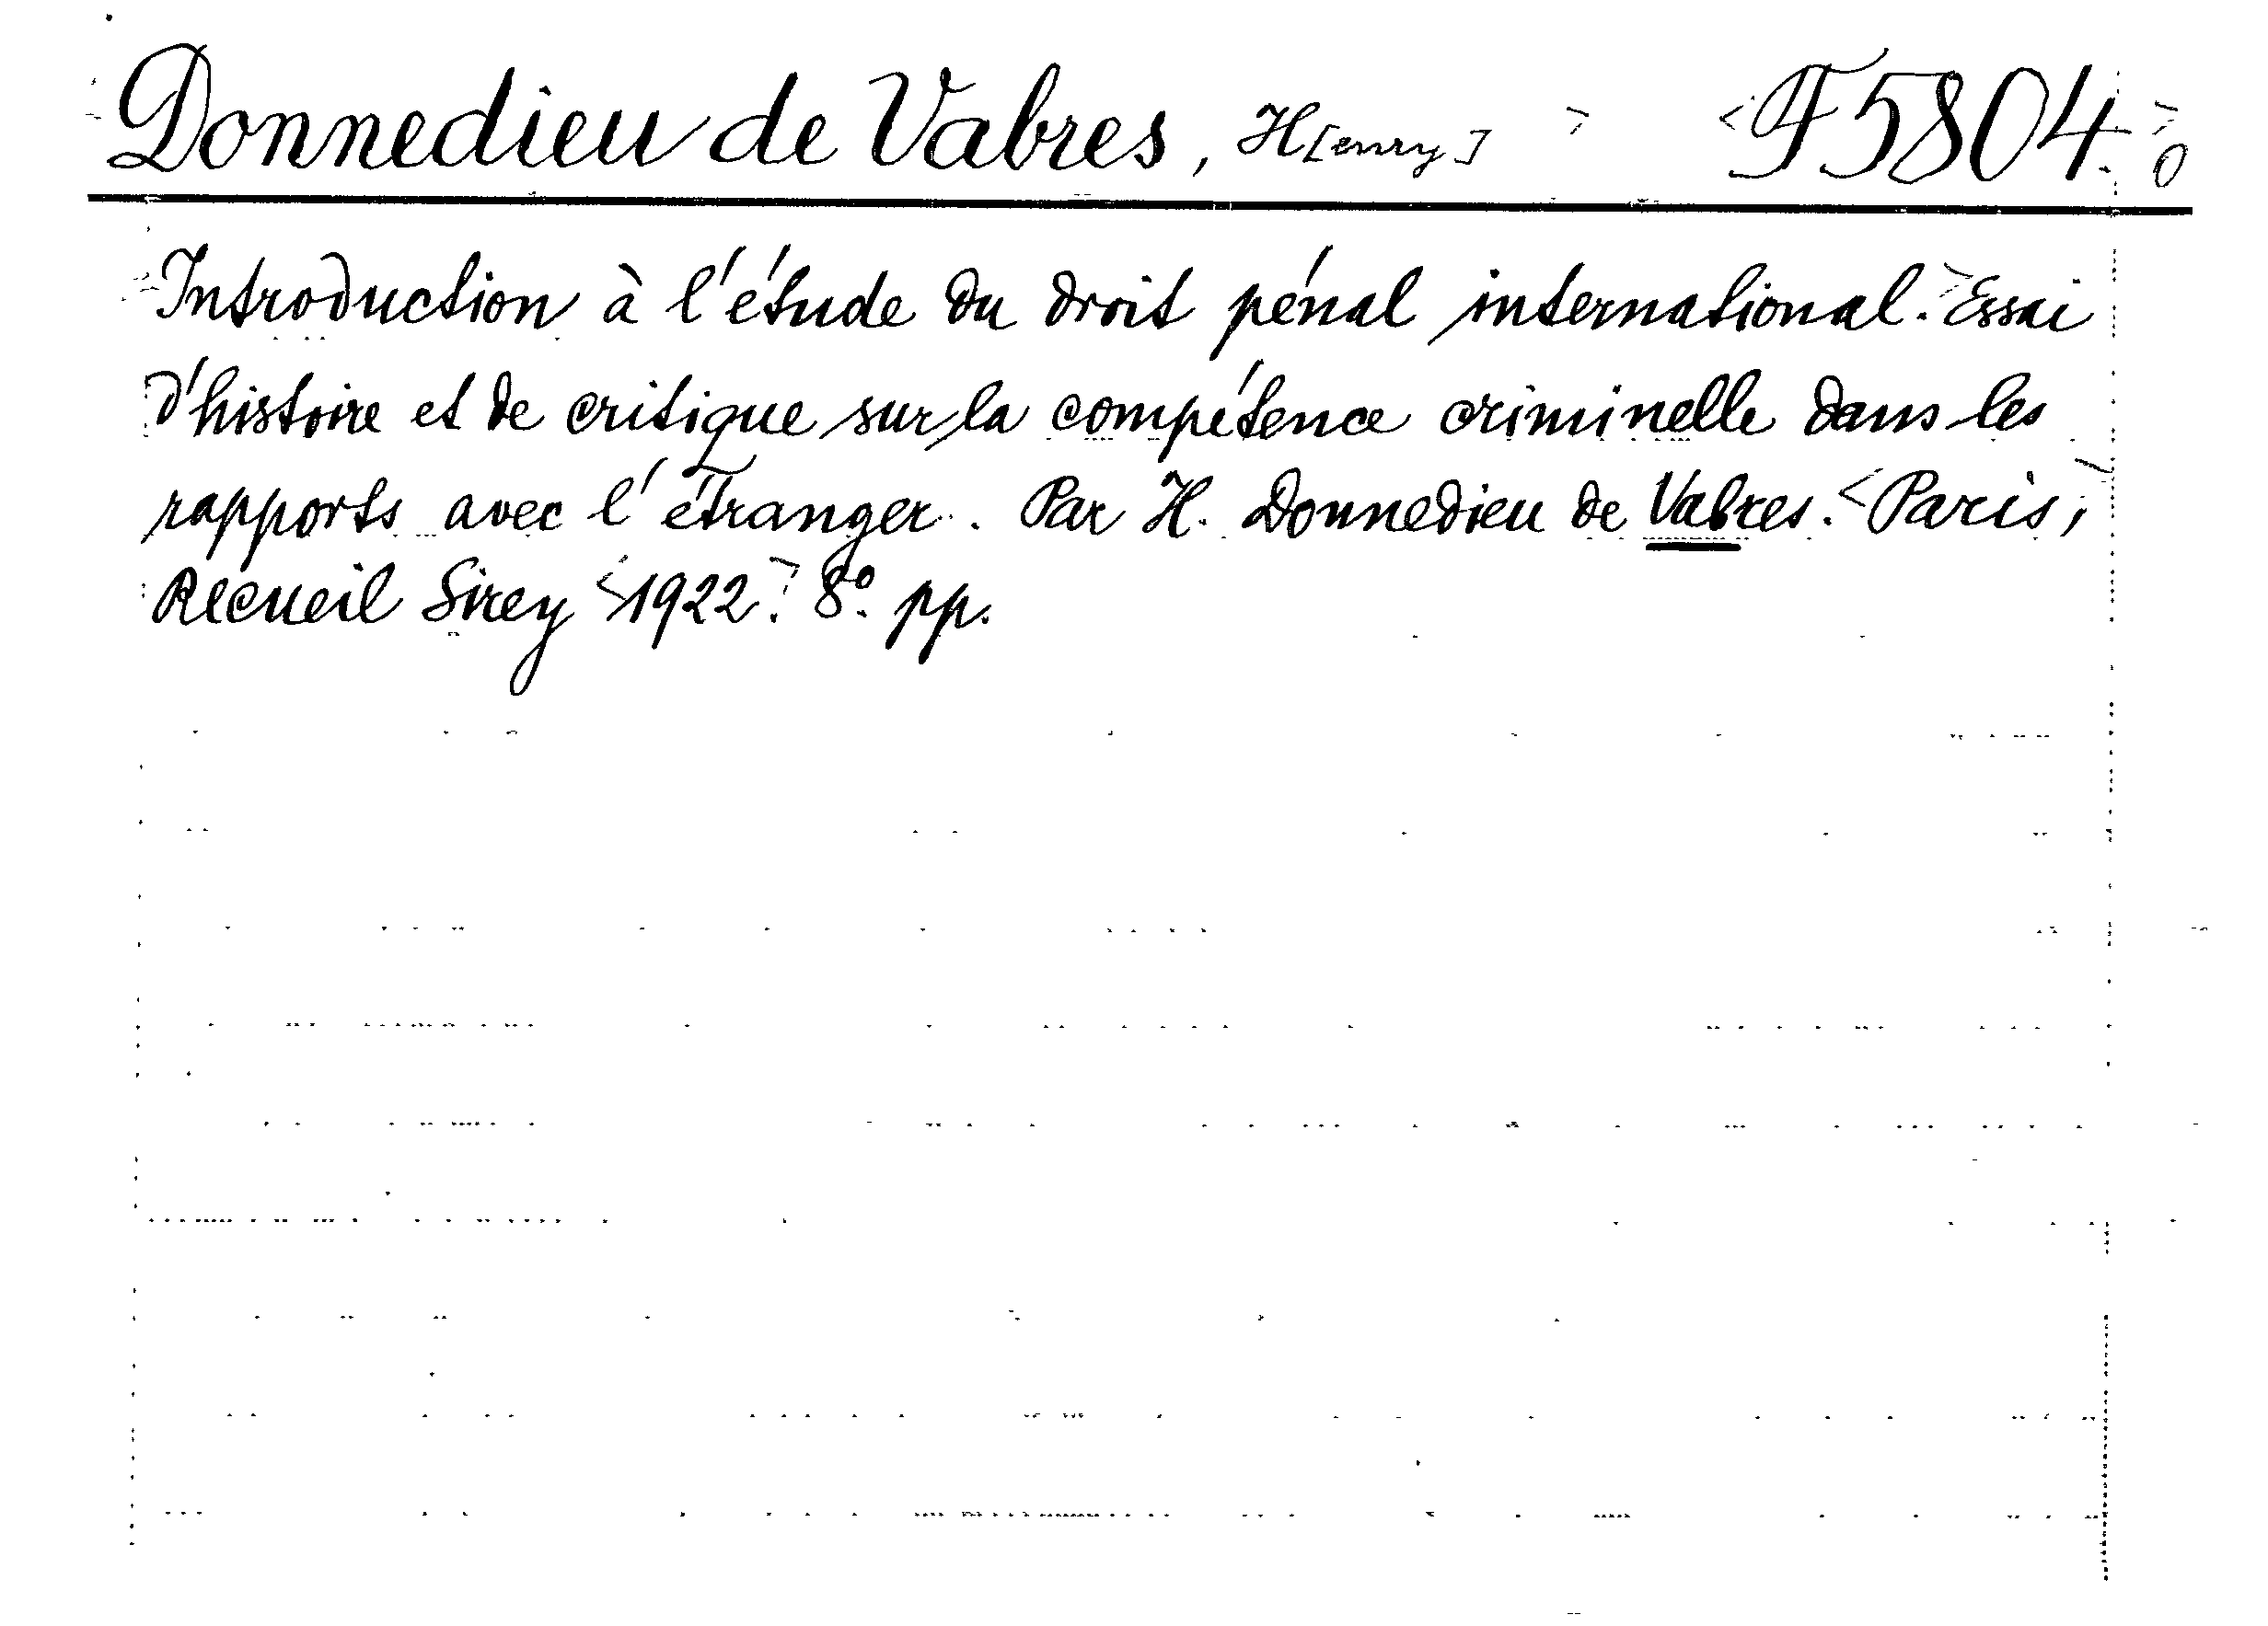 Donnedieu de Vabres, H[enry] F 5804 0
Introduction à l'étude du droit pénal international. Essai
d'histoire et de critique sur la compétence criminelle dans les
rapports avec l'étranger. Par H. Donnedieu de Vabres. Paris,
Recueil Sirey 1922. 8° pp.